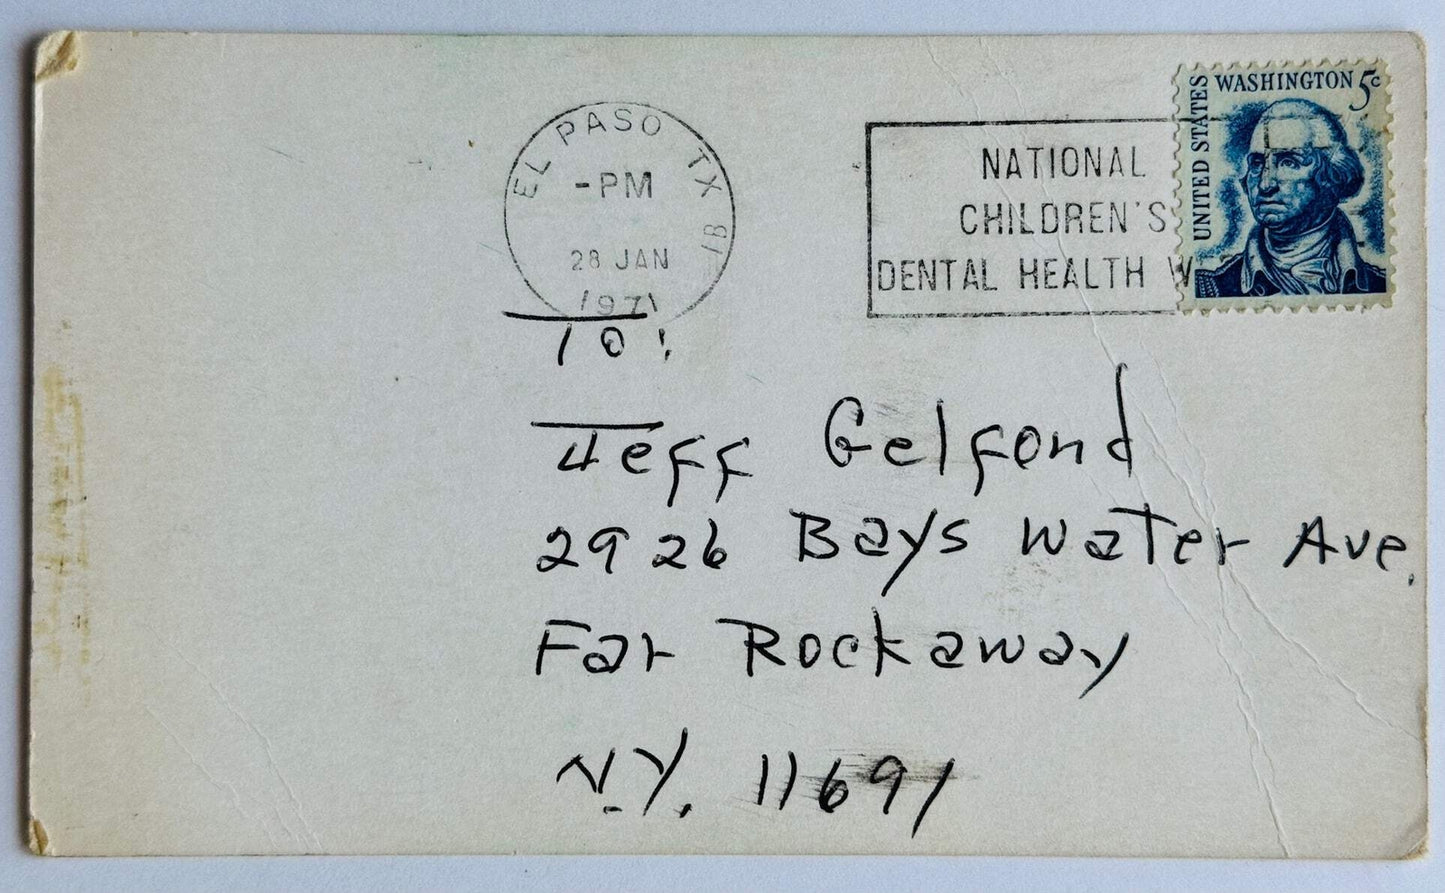 EL PASO TX
-PM
1B
28 JAN
1971
NATIONAL
CHILDREN'S
DENTAL HEALTH W
WASHINGTON 5c
UNITED STATES
To:
Jeff Gelfond
2926 Bays Water Ave.
Far Rockaway
N.Y. 11691